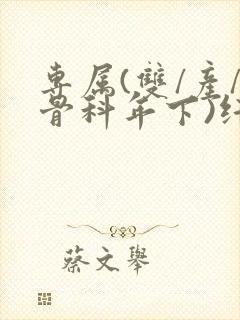 專属(雙/產/
骨科年下)
蔡文舉